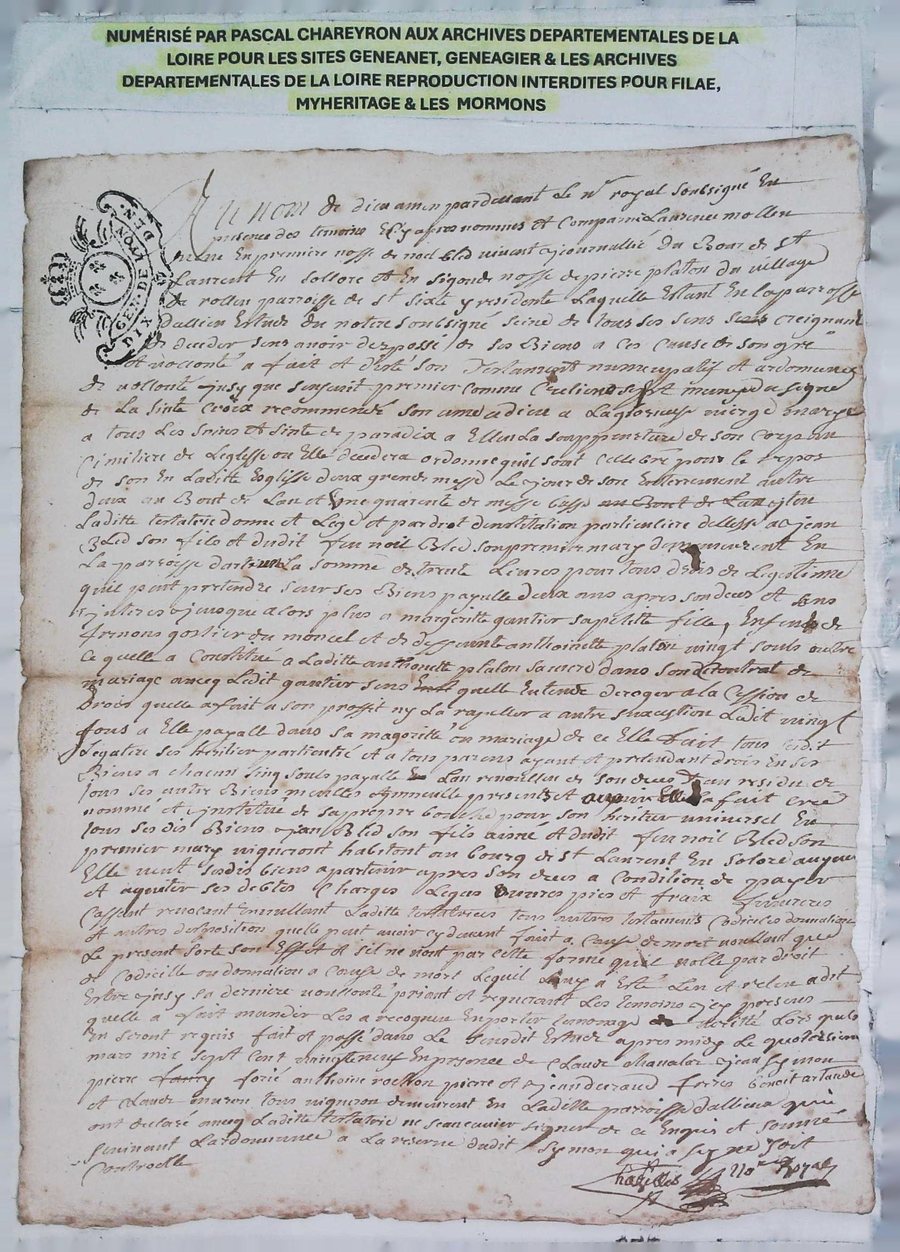 NUMÉRISÉ PAR PASCAL CHAREYRON AUX ARCHIVES DEPARTEMENTALES DE LA
LOIRE POUR LES SITES GENEANET, GENEAGIER & LES ARCHIVES
DEPARTEMENTALES DE LA LOIRE REPRODUCTION INTERDITES POUR FILAE,
MYHERITAGE & LES MORMONS
GEN. DE LYON
DIX DEN.
Au nom de dieu amen pardevant le nre royal soubsigné En
presence des temoins Cy apres nommes et Comparu Laurence mollen
veuve En premiere nosse de noel bled vivant journallié du Bour de st
Laurent En sollore et En sigonde nosse de pierre platon du village
de rollen parroisse de st sixte y residente Laquelle Estant En la parroisse
dallieu Estude du notre soubsigné seine de tous ses sens creignant
de deceder sens avoir despossé de ses Biens a Ces Cause de son gré
et vollonté a fait et dicté son Testament nuncupatif et ardonnance
de vollonté jnsy que sensuit premier Comme munye du signe
de La sinte Croix recommendé son ame a dieu a La glorieuse vierge marye
a tous Les seins et sinte de paradix a Ellu La de son Corp au
Cimitiere de Leglisse ou Elle decedera ordonne quil soint Cellebré pour le repos
de son En Laditte Esglisse deux grende messe Le jour de son Enterrement autre
deux au Bout de Lan et Une quarente de messe basse
Laditte testatrice donne et Lege et par drot dinstitution particuliere delesse a jean
Bled son fils et dudit feu noil Bled son premier mary demeurent En
La parroisse La somme de trente Livres pour tous drois de Legitime
quil peut pretendre sur ses Biens payalle deux ans apres son deces et sens
jnteres jusque a lors plus a margeritte gantier sa petitte fille, Enfent de
du moncel et de deffunte anthoinette platon vingt sous outre
Ce quelle a Constitué a Laditte anthoinette platon sa mere dans son Contrat de
mariage avecq Ledit gantier sens quelle Entende deroger a la Cession de
Drois quelle a fait a son proffit ny La rapeller a autre suxcestion Ledit vingt
sous a Elle payalle dans sa magorité ou mariage de ce Elle fait tous
Legatere ses heritier particulié et a tous parens ayant et pretendant drois En ses
Biens a chacun sinq souls payalle Lan revoullu de son deces au residu de
tous ses autre Biens meuble presents et avenir Elle a fait creé
nommé et jnstitué de sa propre bouche pour son heritier universel En
tous sesdis Biens jean Bled son fils ainé et dudit feu noil Bled son
premier mary vigneront habitent au bourg de st Laurent En solore auquel
Elle veut sesdis biens apartenir apres son deces a Condition de payer
et aquiter ses debtes Charges Legats oeuvres pies et fraix funerere
Cassent revocant Laditte testatrice tous autres testaments Codicilles donnations
et autres dispossition quelle peut avoir cy devant fait a Cause de mort voullant que
Le present sorte son Effet et sil ne vaut par Cette forme quil valle par droit
de Codicille ou donnation a Cause de mort Lequel a Esté Leu et releu a dit
Estre jnsy sa derniere vollonté priant et requerant Les temoins jcy presens
quelle a fait mander Les a recogneu En porter temonage de verité Lors quils
En seront requis fait et passé dans Le Estude apres midy Le quatorsieme
mars mil sept Cent vingt neuf En presence de Claude jean symon
pierre forié anthoine rochon pierre et jean deraud freres benoit artaude
et Claude maron tous vigneron demeurent En Laditte parroisse dallieu qui
ont declaré avecq Laditte testatrice ne scavoir signer de ce Enquis et sommé
suivant Lardonnance a La reserve dudit symon qui a signé soit
Controllé
nore Royal